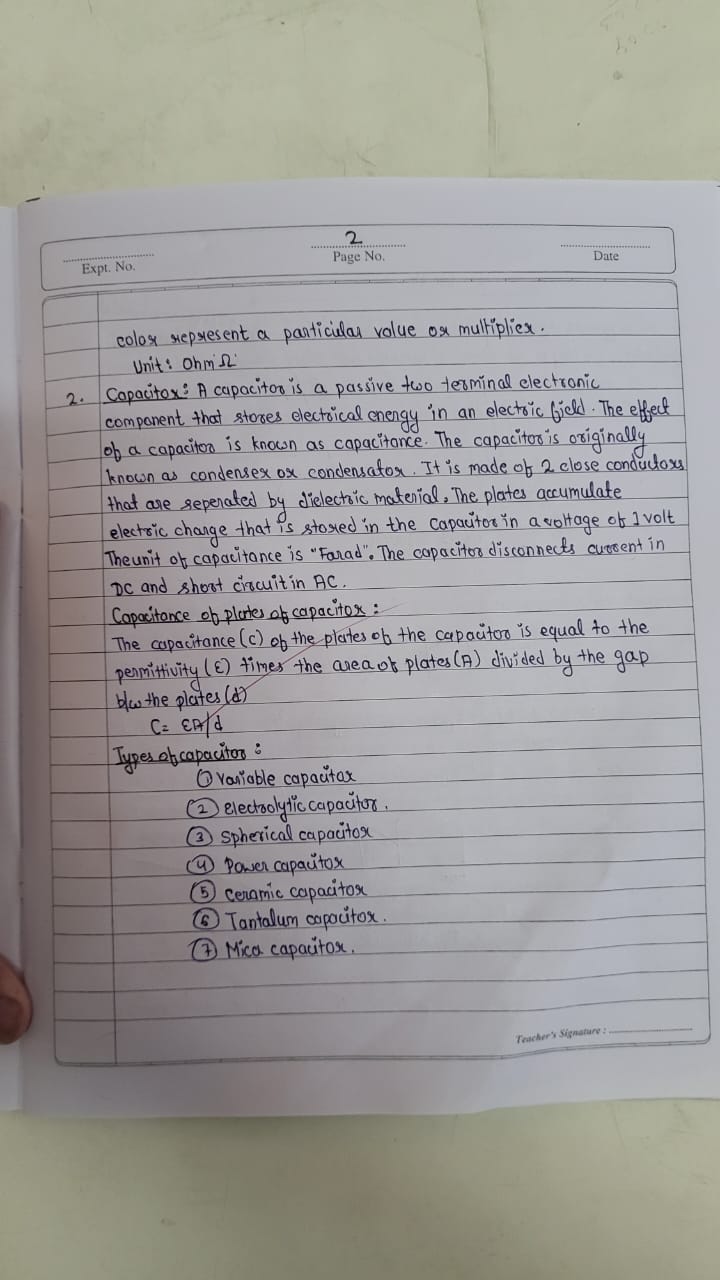 2
Expt. No.
Page No.
Date
color represent a particular value or multiplier.
Unit: Ohm 'Ω'
2. Capacitor: A capacitor is a passive two terminal electronic
component that stores electrical enengy in an electric field. The effect
of a capacitor is known as capacitance. The capacitor is originally
known as condenser or condensator. It is made of 2 close conductors
that are seperated by dielectric material, The plates accumulate
electric charge that is stored in the capacitor in a voltage of 1 volt
The unit of capacitance is "Farad". The capacitor disconnects current in
DC and short circuit in AC.
Capacitance of plates of capacitor :
The capacitance (C) of the plates of the capacitor is equal to the
permittivity (ε) times the area of plates (A) divided by the gap
b/w the plates (d)
C= εA/d
Types of capacitor :
① Variable capacitor
② Electrolytic capacitor.
③ Spherical capacitor
④ Power capacitor
⑤ Ceramic capacitor
⑥ Tantalum capacitor.
⑦ Mica capacitor.
Teacher's Signature :